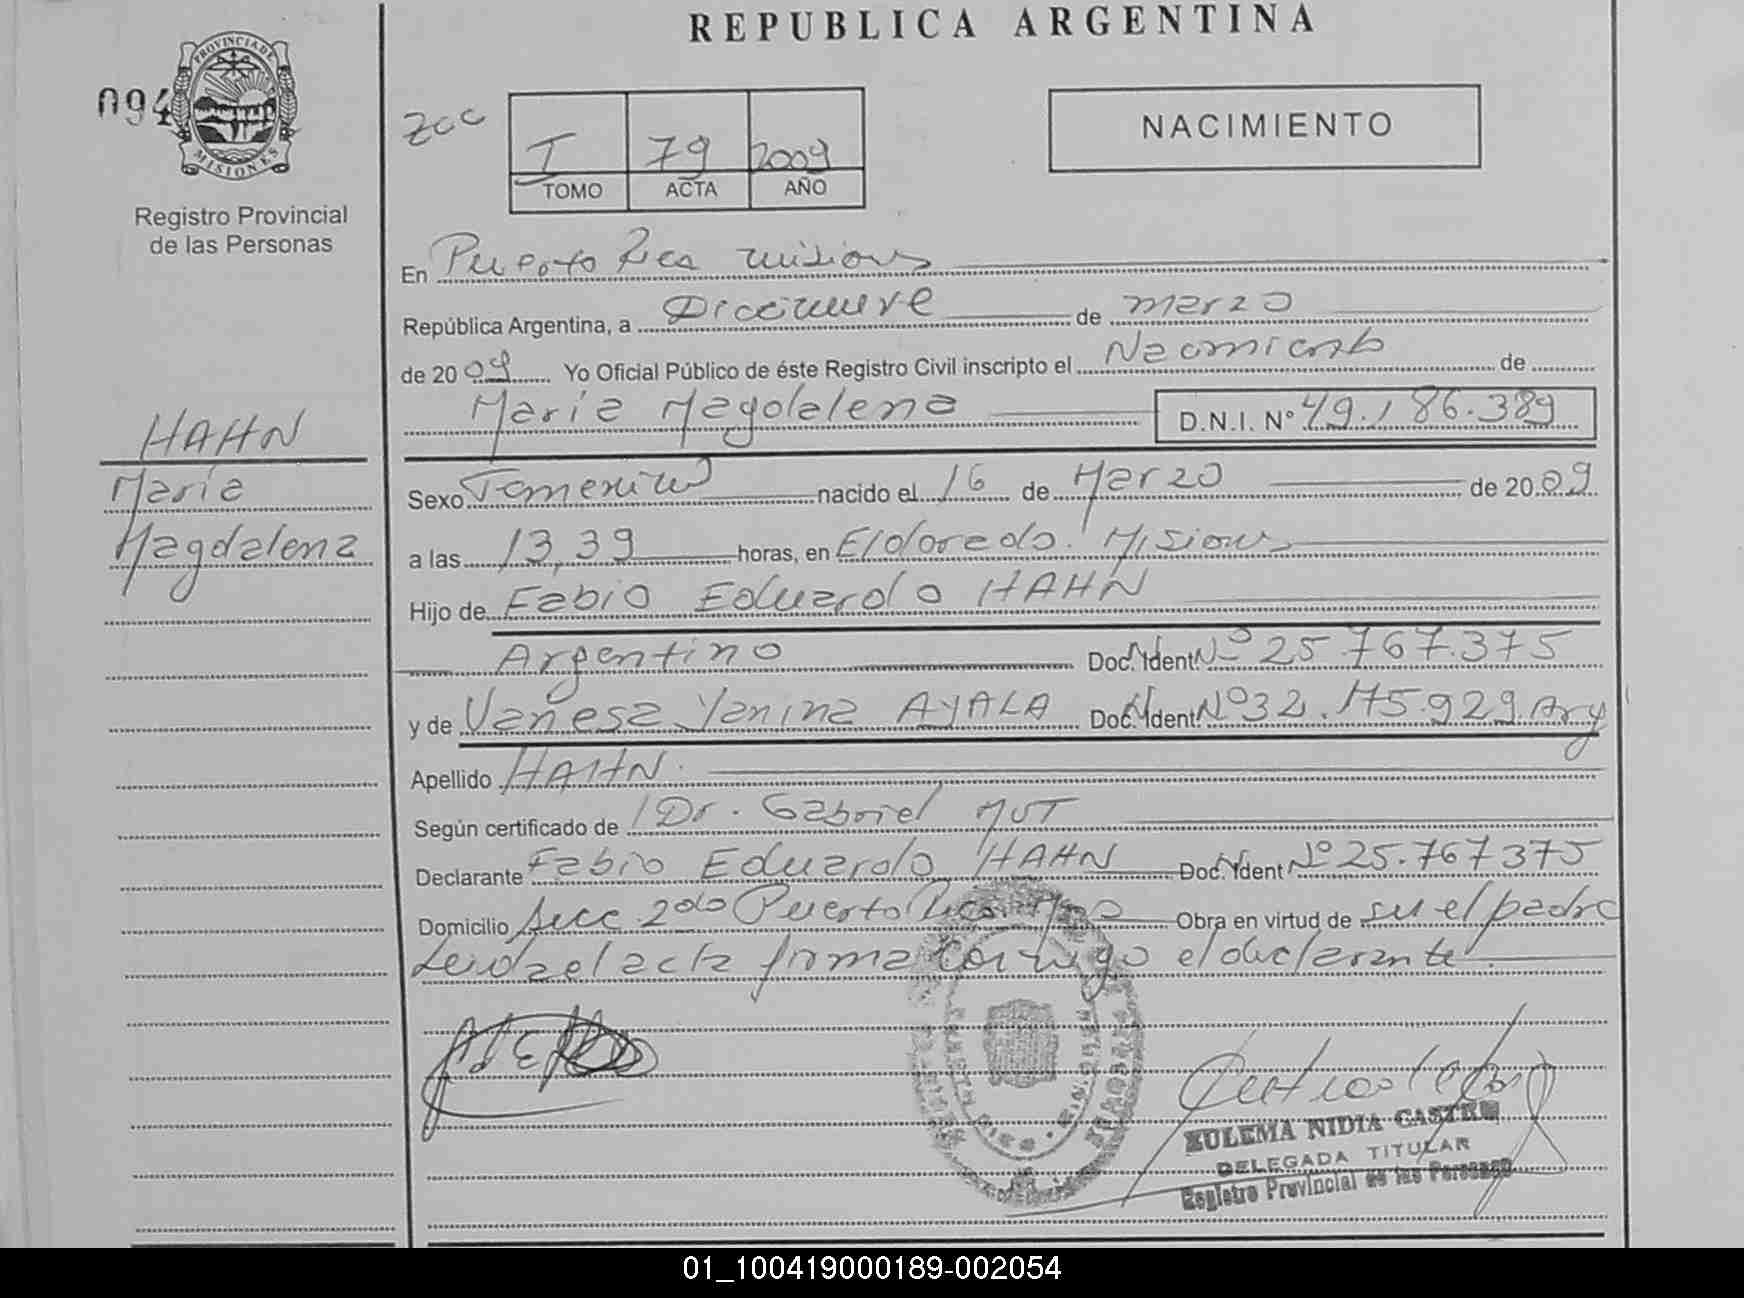 REPUBLICA ARGENTINA
PROVINCIA DE
MISIONES
094
Registro Provincial
de las Personas
I 79 2009
TOMO ACTA AÑO
NACIMIENTO
En Puerto Rico Misiones
República Argentina, a Diecinueve de marzo
de 2009 Yo Oficial Público de éste Registro Civil inscripto el Nacimiento de
María Magdalena D.N.I. Nº 49.186.389
HAHN
María
Magdalena
Sexo Femenino nacido el 16 de Marzo de 2009
a las 13,39 horas, en Eldorado. Misiones
Hijo de Fabio Eduardo HAHN
Argentino Doc. Ident Nº 25.767.375
y de Vanesa Yanina AYALA Doc. Ident Nº 32.175.929. Arg
Apellido HAHN.
Según certificado de Dr. Gabriel MUT
Declarante Fabio Eduardo HAHN Doc. Ident Nº 25.767375
Domicilio Secc. 2da Puerto Rico Obra en virtud de su el padre
Leida el acta firma conmigo el declarante.
ZULEMA NIDIA CASTRO
DELEGADA TITULAR
Registro Provincial de las Personas
01_100419000189-002054